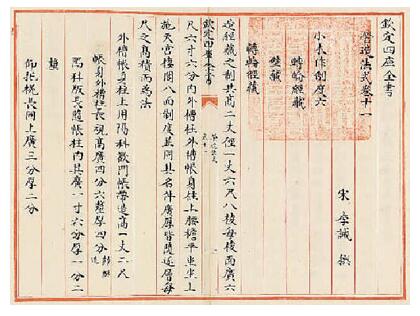 欽定四庫全書
營造法式卷十一
宋 李誡 撰
小木作制度六
轉輪經藏
壁藏
轉輪經藏
造經藏之制共高二丈徑一丈六尺八棱每棱面廣六
尺六寸六分内外槽柱外槽帳身柱上腰檐平坐坐上
欽定四庫全書
施天宫樓閣八面制度並同其名件廣厚皆隨逐層每
尺之高積而為法
外槽帳身柱上用隔科歡門帳帶造高一丈二尺
帳身外槽柱長視高廣四分六釐厚四分
隔科版長隨帳柱内其廣一寸六分厚一分二
釐
仰托榥長同上廣三分厚二分